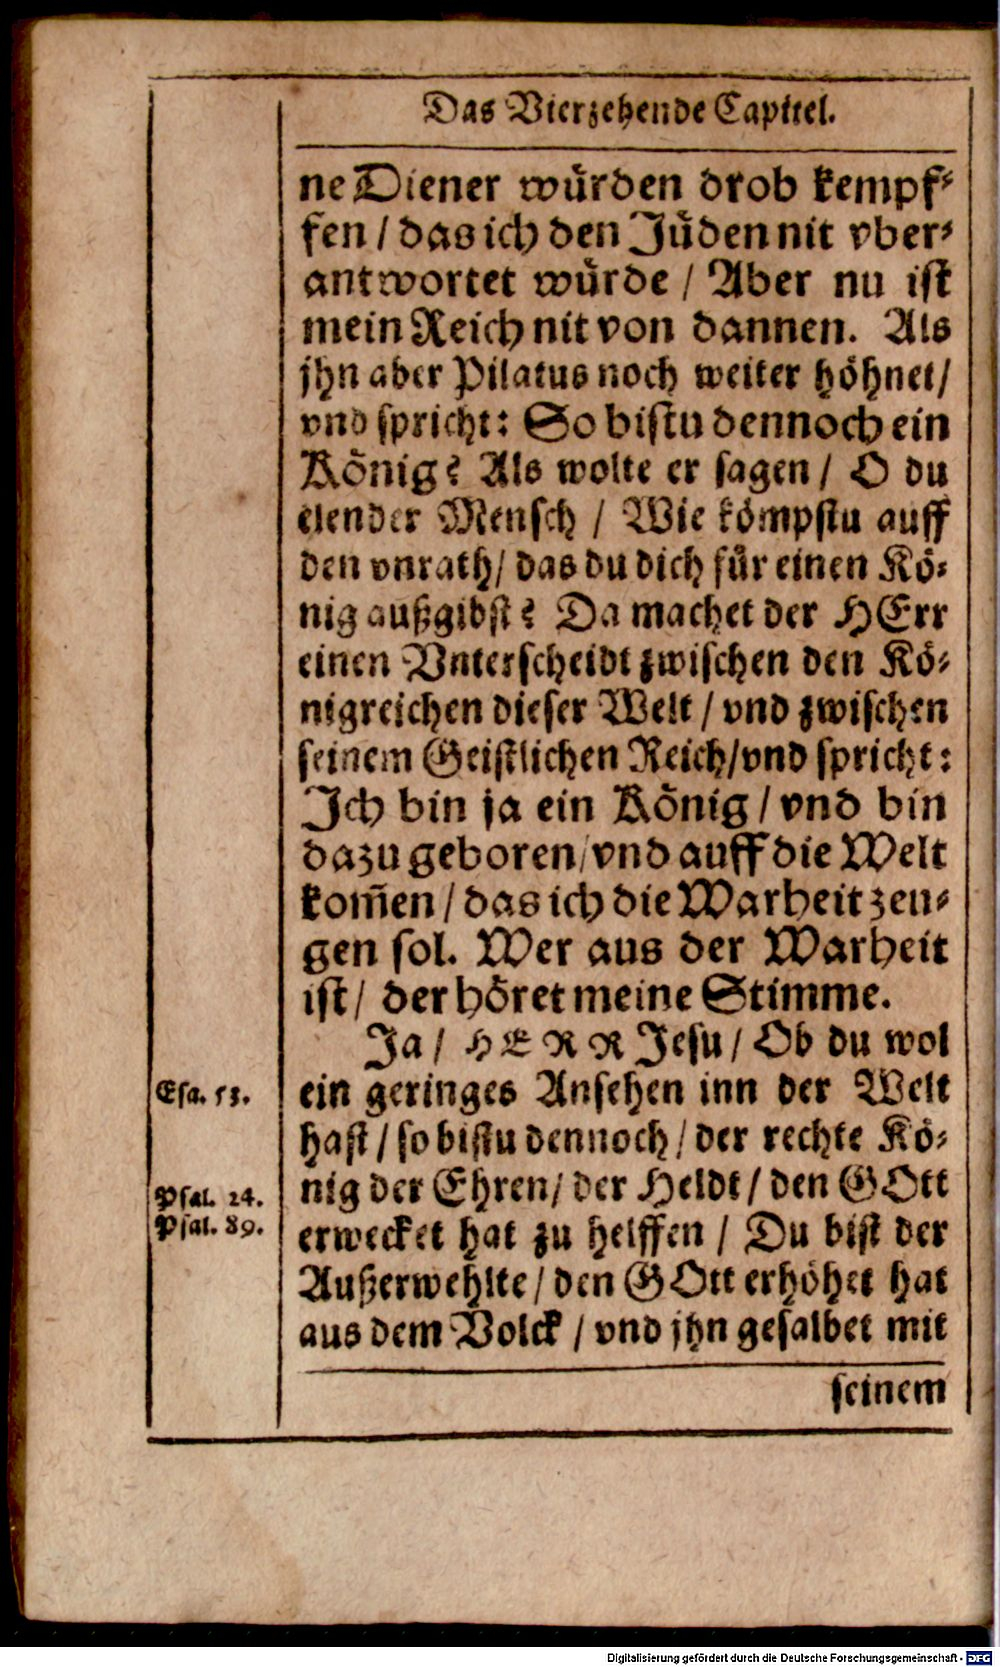 Das Vierzehende Capitel.
ne Diener wuͤrden drob kempf⸗
fen / das ich den Juͤden nit vber⸗
antwortet wuͤrde / Aber nu ist
mein Reich nit von dannen. Als
jhn aber Pilatus noch weiter hoͤhnet /
vnd spricht: So bistu dennoch ein
Koͤnig? Als wolte er sagen / O du
elender Mensch / Wie koͤmpstu auff
den vnrath / das du dich fuͤr einen Koͤ⸗
nig außgibst? Da machet der HErr
einen Vnterscheidt zwischen den Koͤ⸗
nigreichen dieser Welt / vnd zwischen
seinem Geistlichen Reich / vnd spricht:
Ich bin ja ein Koͤnig / vnd bin
dazu geboren / vnd auff die Welt
kom̃en / das ich die Warheit zeu⸗
gen sol. Wer aus der Warheit
ist / der hoͤret meine Stimme.
Ja / HERR Jesu / Ob du wol
Esa. 53.
ein geringes Ansehen inn der Welt
hast / so bistu dennoch / der rechte Koͤ⸗
Psal. 24.
nig der Ehren / der Heldt / den GOtt
Psal. 89.
erwecket hat zu helffen / Du bist der
Außerwehlte / den GOtt erhoͤhet hat
aus dem Volck / vnd jhn gesalbet mit
seinem
Digitalisierung gefördert durch die Deutsche Forschungsgemeinschaft - DFG